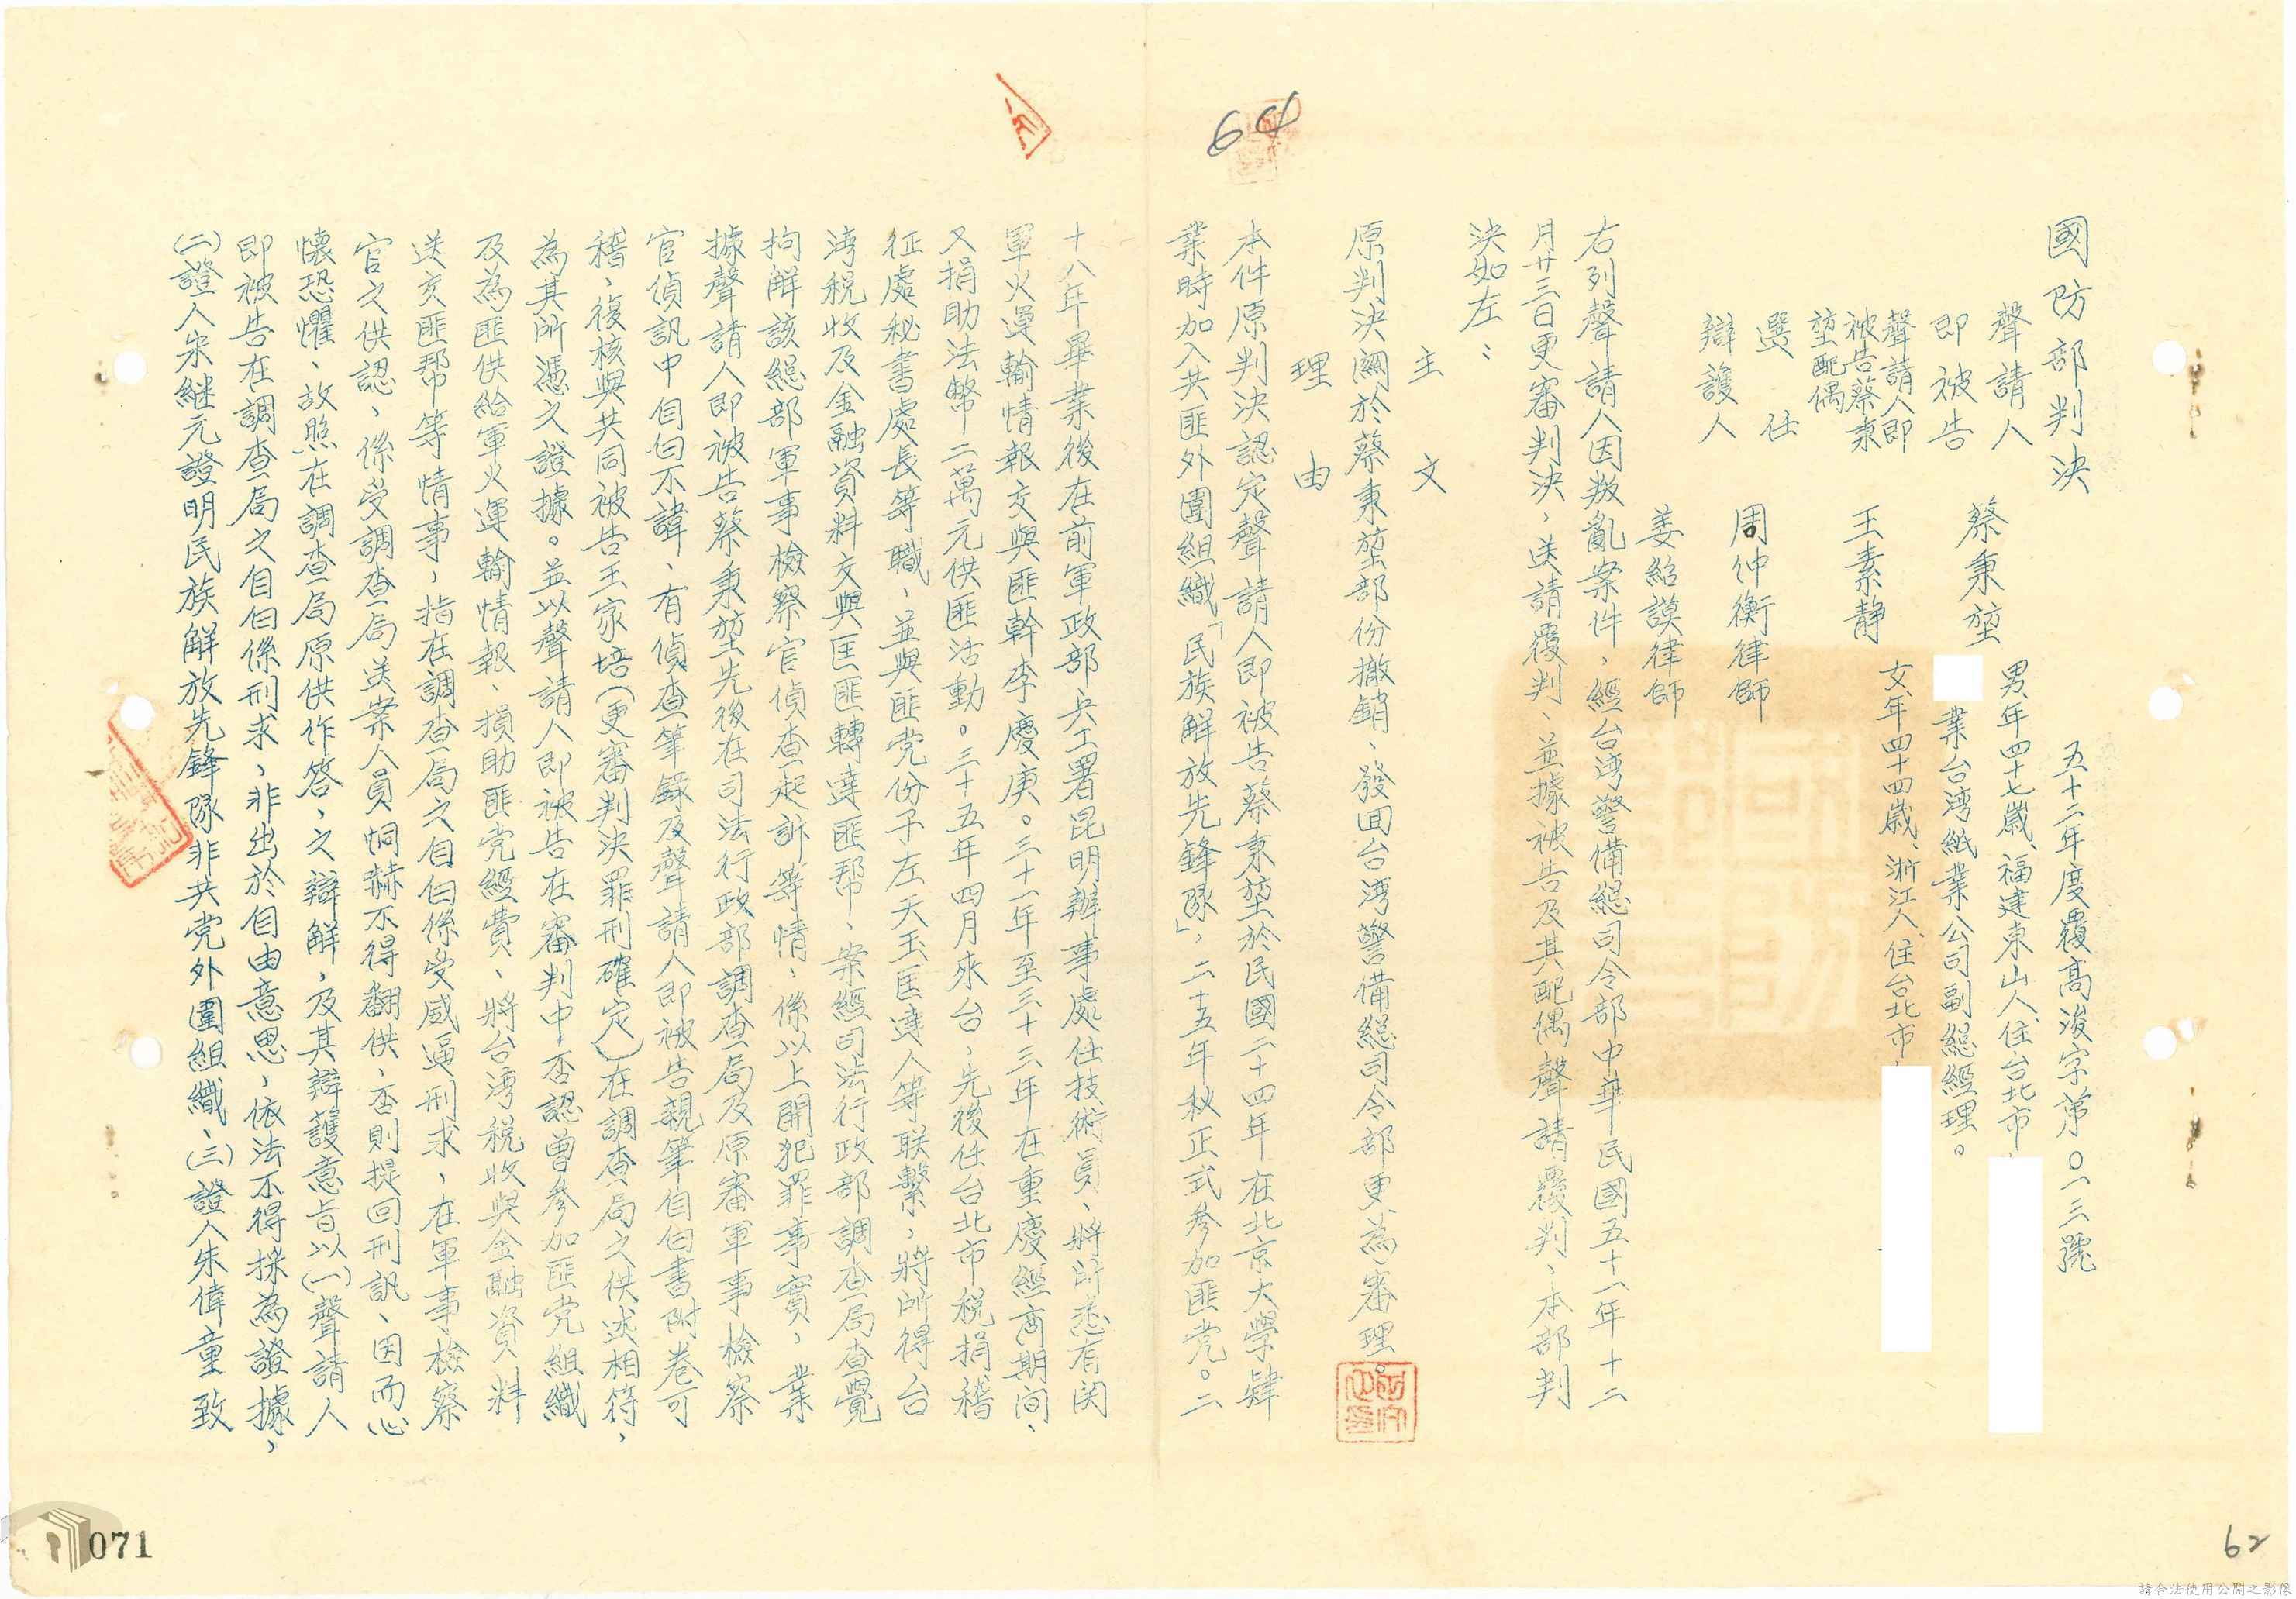 國防部判決
五十二年度覆高浚字第〇一三號
聲請人
即被告
蔡秉堃
男、年四十七歲、福建東山人、住台北市
業台湾紙業公司副總經理。
聲請人即
被告蔡秉
堃配偶
王素静
女、年四十四歲、浙江人、住台北市
選任
辯護人
周仲衡律師
姜紹謨律師
右列聲請人因叛亂案件，經台湾警備總司令部中華民國五十一年十二
月廿三日更審判決，送請覆判、並據被告及其配偶聲請覆判、本部判
決如左：
主文
原判決關於蔡秉堃部份撤銷、發回台湾警備總司令部更為審理。
理由
本件原判決認定聲請人即被告蔡秉堃於民國二十四年在北京大學肄
業時加入共匪外圍組織「民族解放先鋒隊」，二十五年秋正式參加匪党。二
十八年畢業後在前軍政部兵工署昆明辦事處任技術員、將所悉有関
軍火運輸情報交與匪幹李慶庚。三十一年至三十三年在重慶經商期间、
又捐助法幣二萬元供匪活動。三十五年四月來台、先後任台北市稅捐稽
征處秘書處長等職、並與匪党份子左天玉匡達人等联繫，將所得台
湾税收及金融資料交與匡匪轉達匪幫、案經司法行政部調查局查覺
拘解該總部軍事檢察官偵查起訴等情、係以上開犯罪事實，業
據聲請人即被告蔡秉堃先後在司法行政部調查局及原審軍事檢察
官偵訊中自白不諱、有偵查筆錄及聲請人即被告親筆自白書附卷可
稽、復核與共同被告王家培（更審判決罪刑確定）在調查局之供述相符，
為其所憑之證據。並以聲請人即被告在審判中否認曾參加匪党組織
及為匪供給軍火運輸情報、損助匪党經費、將台湾税收與金融資料
送交匪幫等情事，指在調查局之自白係受威逼刑求，在軍事檢察
官之供認、係受調查局送案人員恫赫不得翻供，否則提回刑訊、因而心
懐恐懼、故照在調查局原供作答，之辯解，及其辯護意旨以(一)聲請人
即被告在調查局之自白係刑求，非出於自由意思，依法不得採為證據，
(二)證人宋継元證明民族解放先鋒隊非共党外圍組織、(三)證人朱偉童致
64
62
071
請合法使用公開之影像